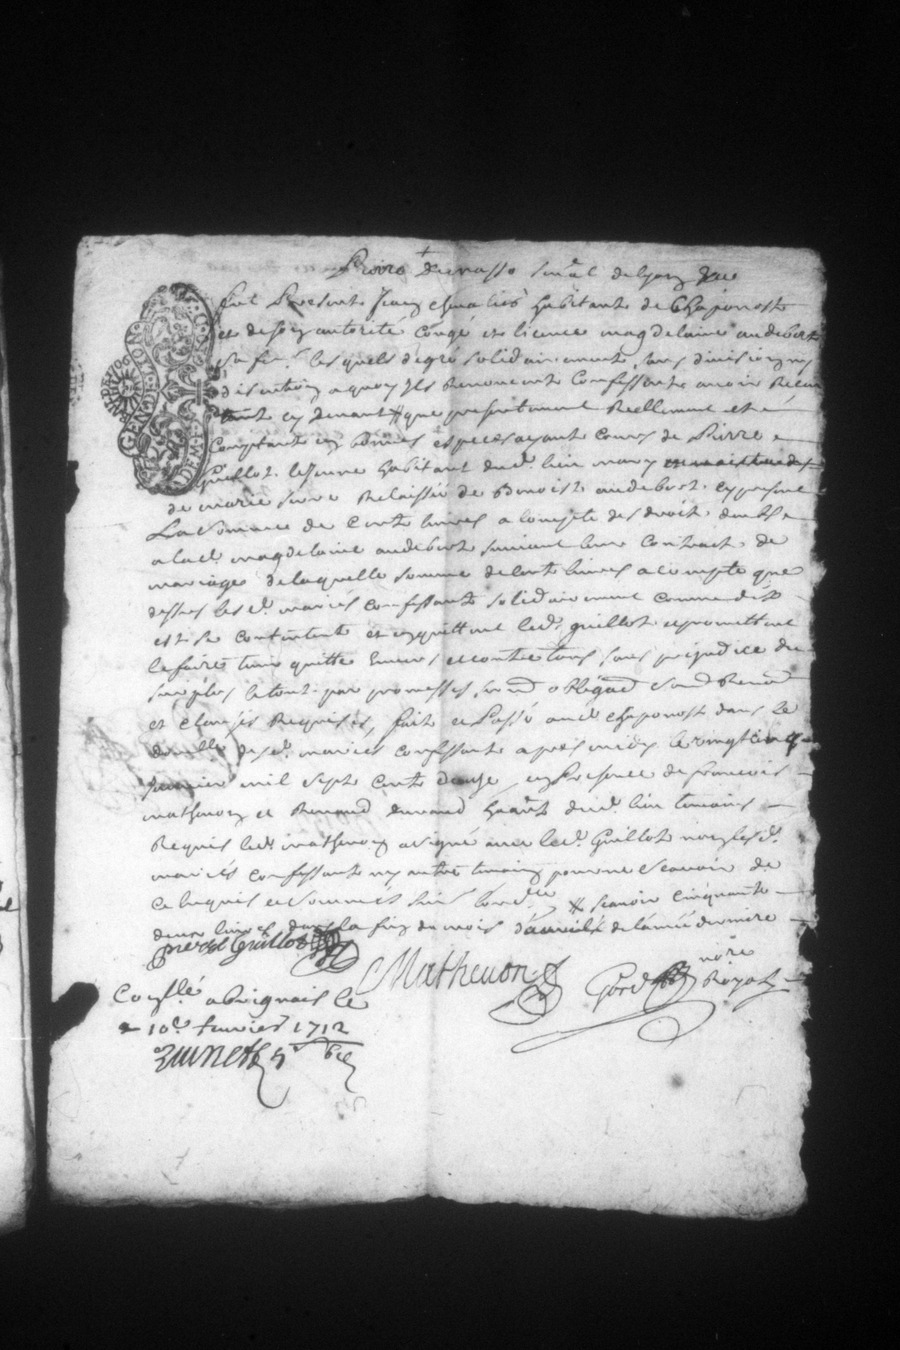 GEN DE LYON
DEM
fut Presents Jean chevalier habitant de Chaponost
et de son autorité congé et licence magdelaine audebert
sa fe lesquels de gré solidairement sans division ny
discution a quoy Ils Renoncent Confessent avoir Receu
cy devant # que presentement Reellement et
Comptant en bonnes especes ayant cours de Pierre
Guillot le Jeune habitant dud. lieu mary
de marie Relaissée de Benoist audebert
La Somme de Cent livres a compte des droits
a lad. magdelaine audebert suivant leur Contract de
mariage de laquelle somme de Cent livres a compte que
dessus les d. mariés confessants solidairement comme dit
est se contentent et en quittent led. Guillot et promettent
le faire tenir quitte Envers et contre tous sans prejudice du
surplus le tout par promesses
et clauses Requises, fait et Passé aud. chaponost dans le
domicille desd. mariés confessants apres midy le vingt cinq
Janvier mil sept cents douze, en Presence de francois
mathevon et durand dud. lieu temoins
Requis led. mathevon a signé avec led. Guillot non lesd.
mariés confessants ny autre temoing pour ne Scavoir de
ce Enquis et Sommés # scavoir Cinquante
deux livres dans la fin du mois d'avril de lannée derniere
pierre Guillot
Matheuon
nore
Royal
Conllé a brignais le
10e fevrier 1712